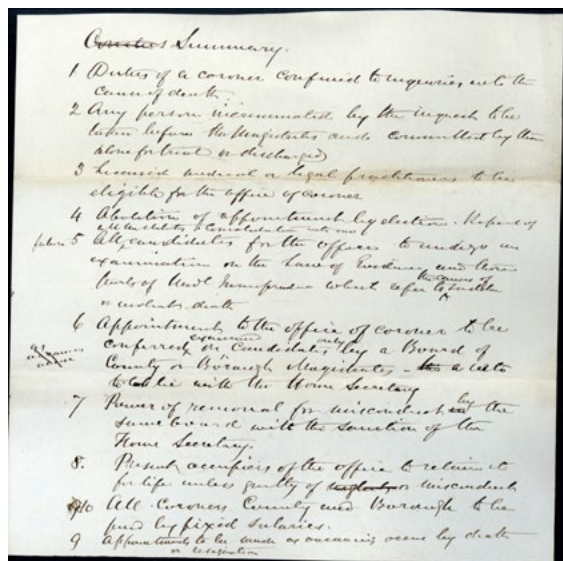 Summary.
1 Duties of a coroner confined to inquiries into the
cause of death.
2 Any person incriminated by the inquest to be
taken before the Magistrates and committed by them
alone for trial or discharged
3 Licensed medical or legal practitioners to be
eligible for the office of coroner
4 Abolition of appointment by election. Repeal of
all the Statutes & Consolidation into one
future 5 All candidates for the office to undergo an
examination on the Law of Evidence and those
parts of Medl Jurisprudence which refer to the causes of sudden
or violent death
6 Appointment to the office of coroner to be
conferred on examined candidates only by a Board of
County or Borough Magistrates - a veto
to lie with the Home Secretary
as vacancies
7 Power of removal for misconduct by the
same board with the sanction of the
Home Secretary.
8. Present occupiers of the office to retain it
for life unless guilty of neglect or misconduct
10 All Coroners County and Borough to be
paid by fixed salaries.
9 Appointments to be made as vacancies occur by death
or resignation